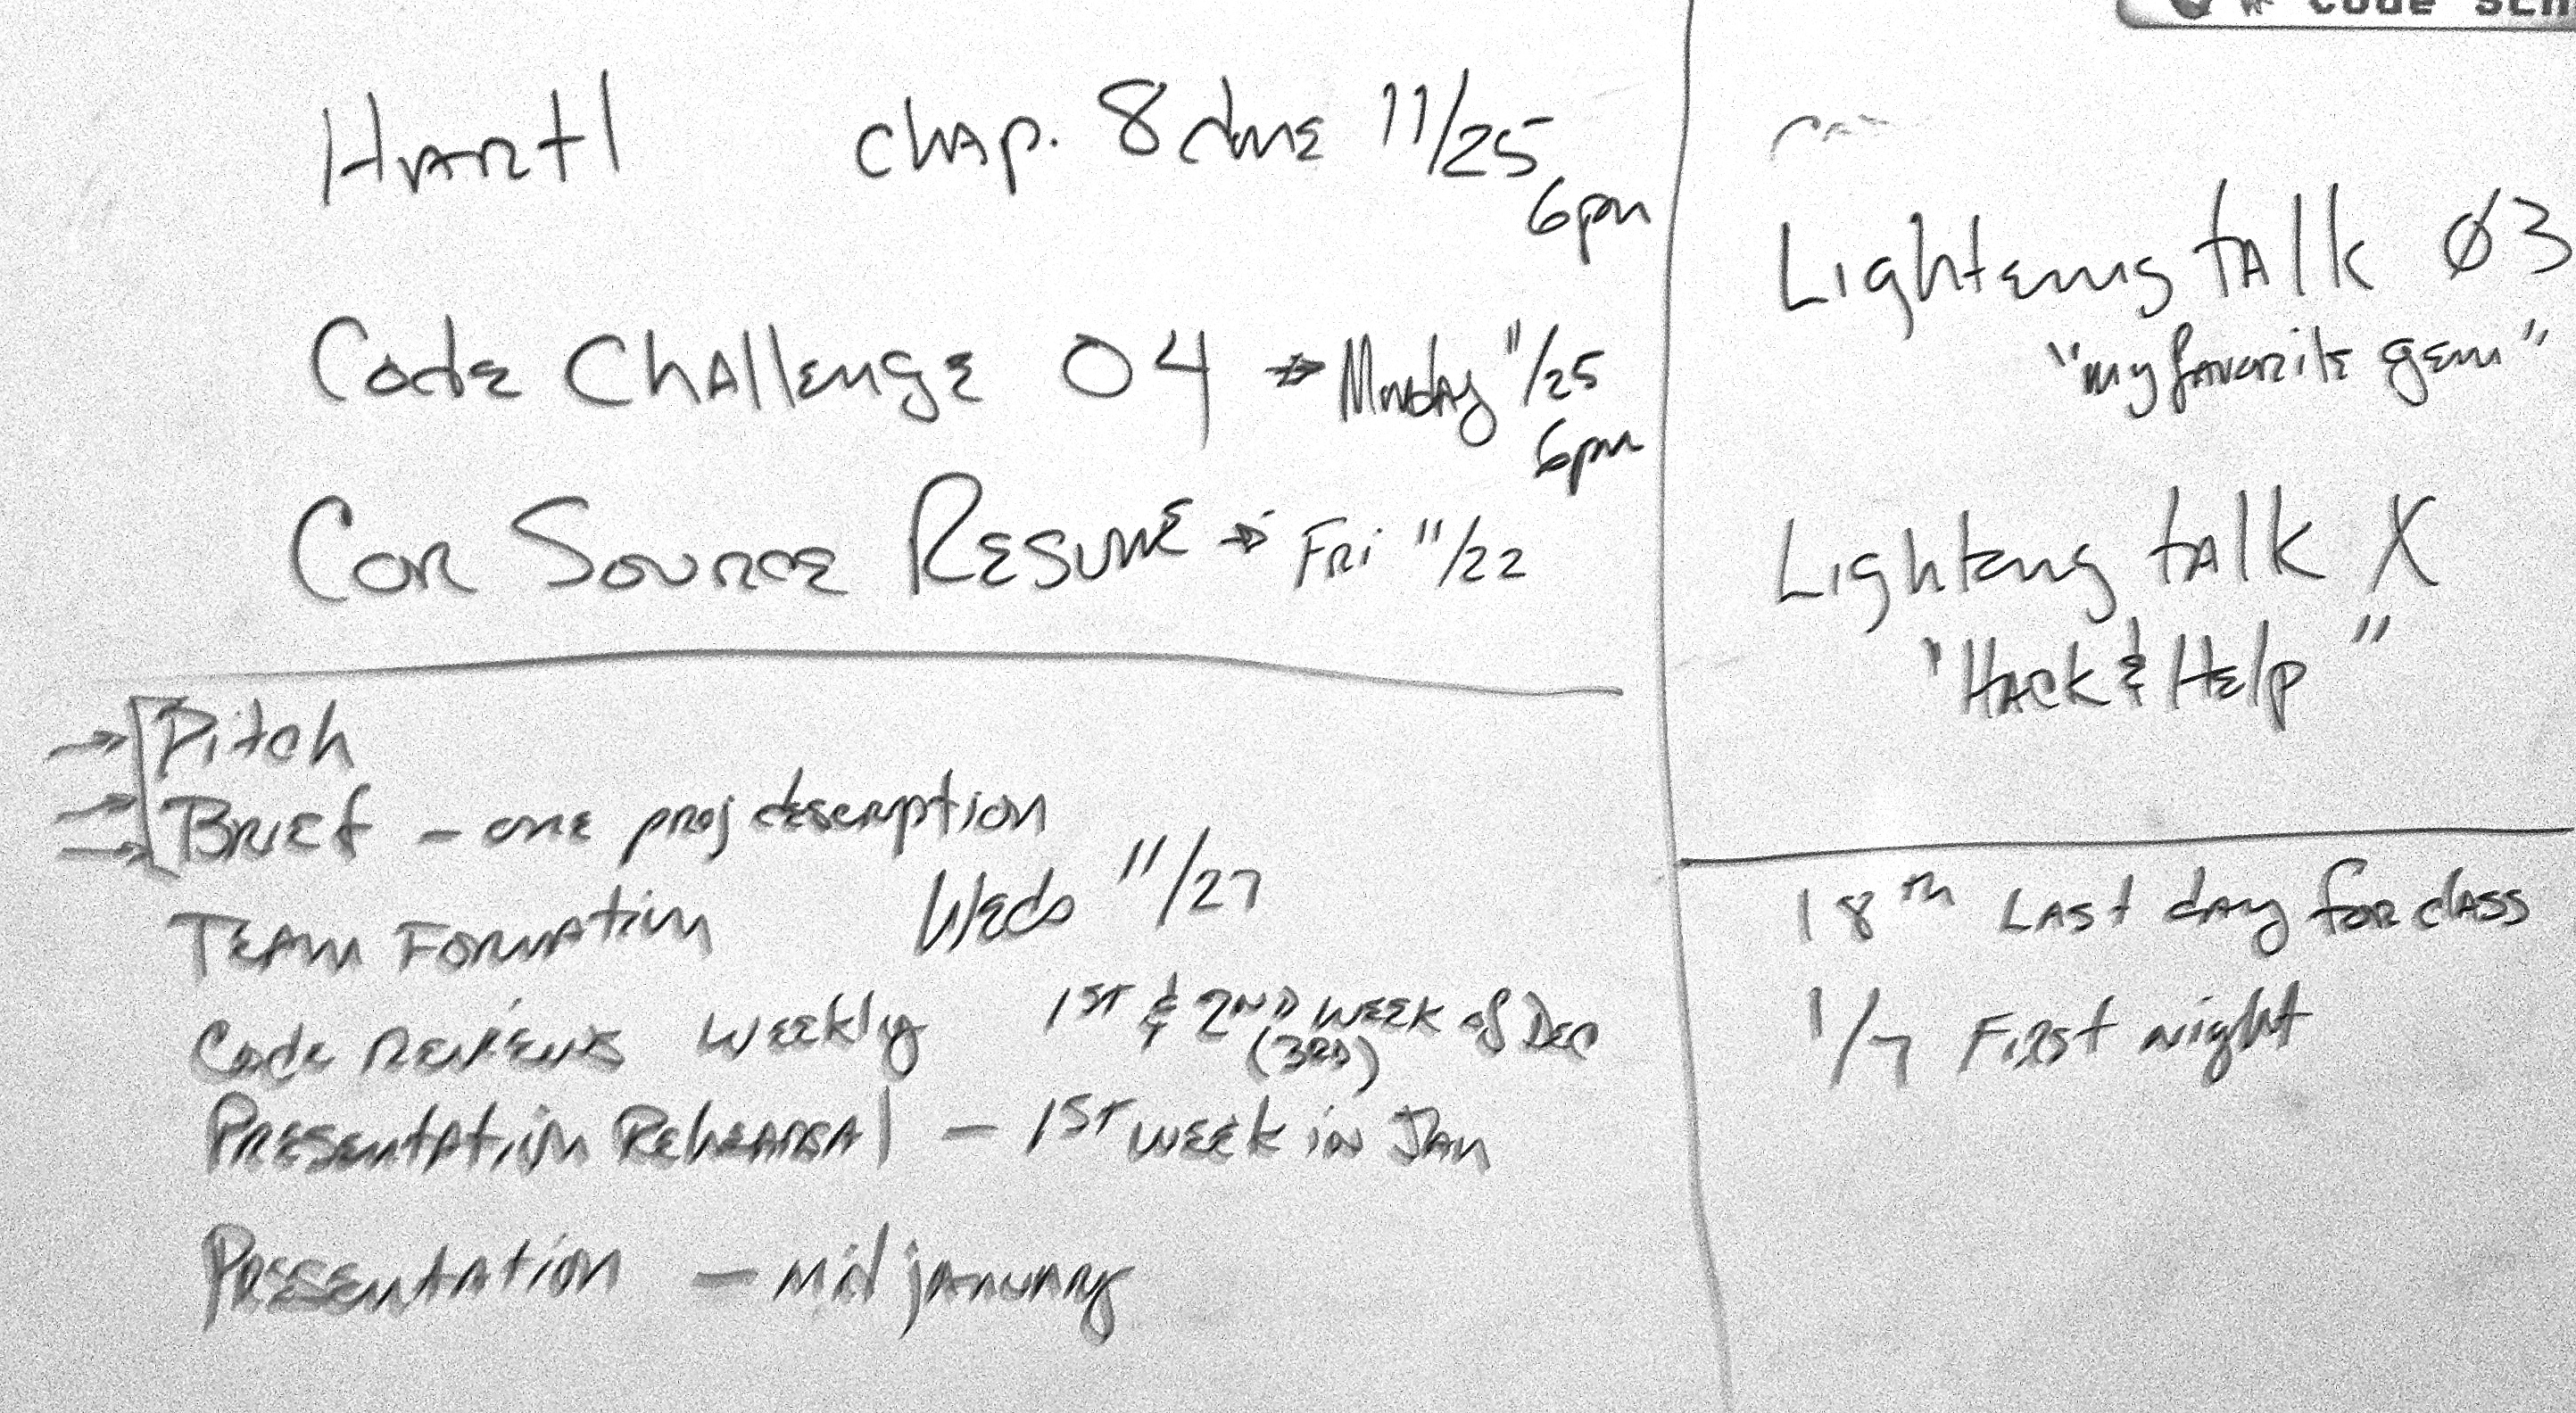 Hartl chap. 8 due 11/25
6pm
Code Challenge 04 → Monday 11/25
6pm
Cor Source Resume → Fri 11/22
Pitch
Brief - one proj description
Team Formation Weds 11/27
Code Reviews weekly 1st & 2nd week of Dec
(3rd)
Presentation Rehearsal - 1st week in Jan
Presentation - mid january
Code
Lightening talk 03
"my favorite gem"
Lightening talk X
"Hack & Help"
18th Last day for class
1/7 First night